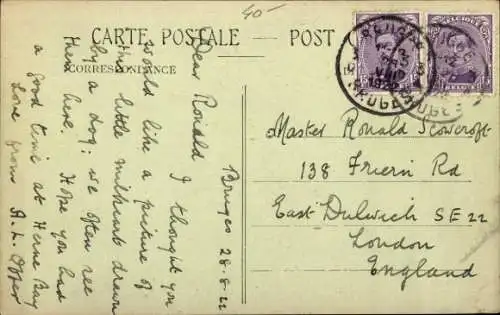 40-
CARTE POSTALE
POST
CORRESPONDANCE
BRUGGE
3
1922
BRUGES
BELGIQUE
Bruges 28.8.22
Dear Ronald I thought you
would like a picture of
this little milkcart drawn
by a dog: we often see
them here. Hope you had
a good time at Herne Bay
Love from
Master Ronald Scowcroft
138 Friern Rd
East Dulwich SE 22
London
England